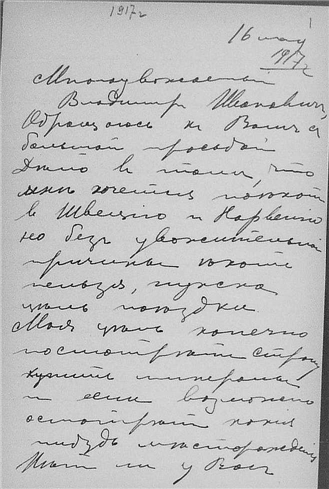 1917г
1
16 мая
1917г
Многоуважаемый
Владимир Иванович,
Обращаюсь к Вамъ с
большой просьбой
Дѣло в томъ, что
мнѣ хочется поехать
в Швецію и Норвегію
но безъ уважительной
причины ехать
нельзя, нужна
цѣль поездки
Моя цѣль конечно
посмотрѣть страну,
купить минералы
и если возможно
осмотрѣть какія
нибудь мѣсторожденія
Нѣтъ ли у Васъ